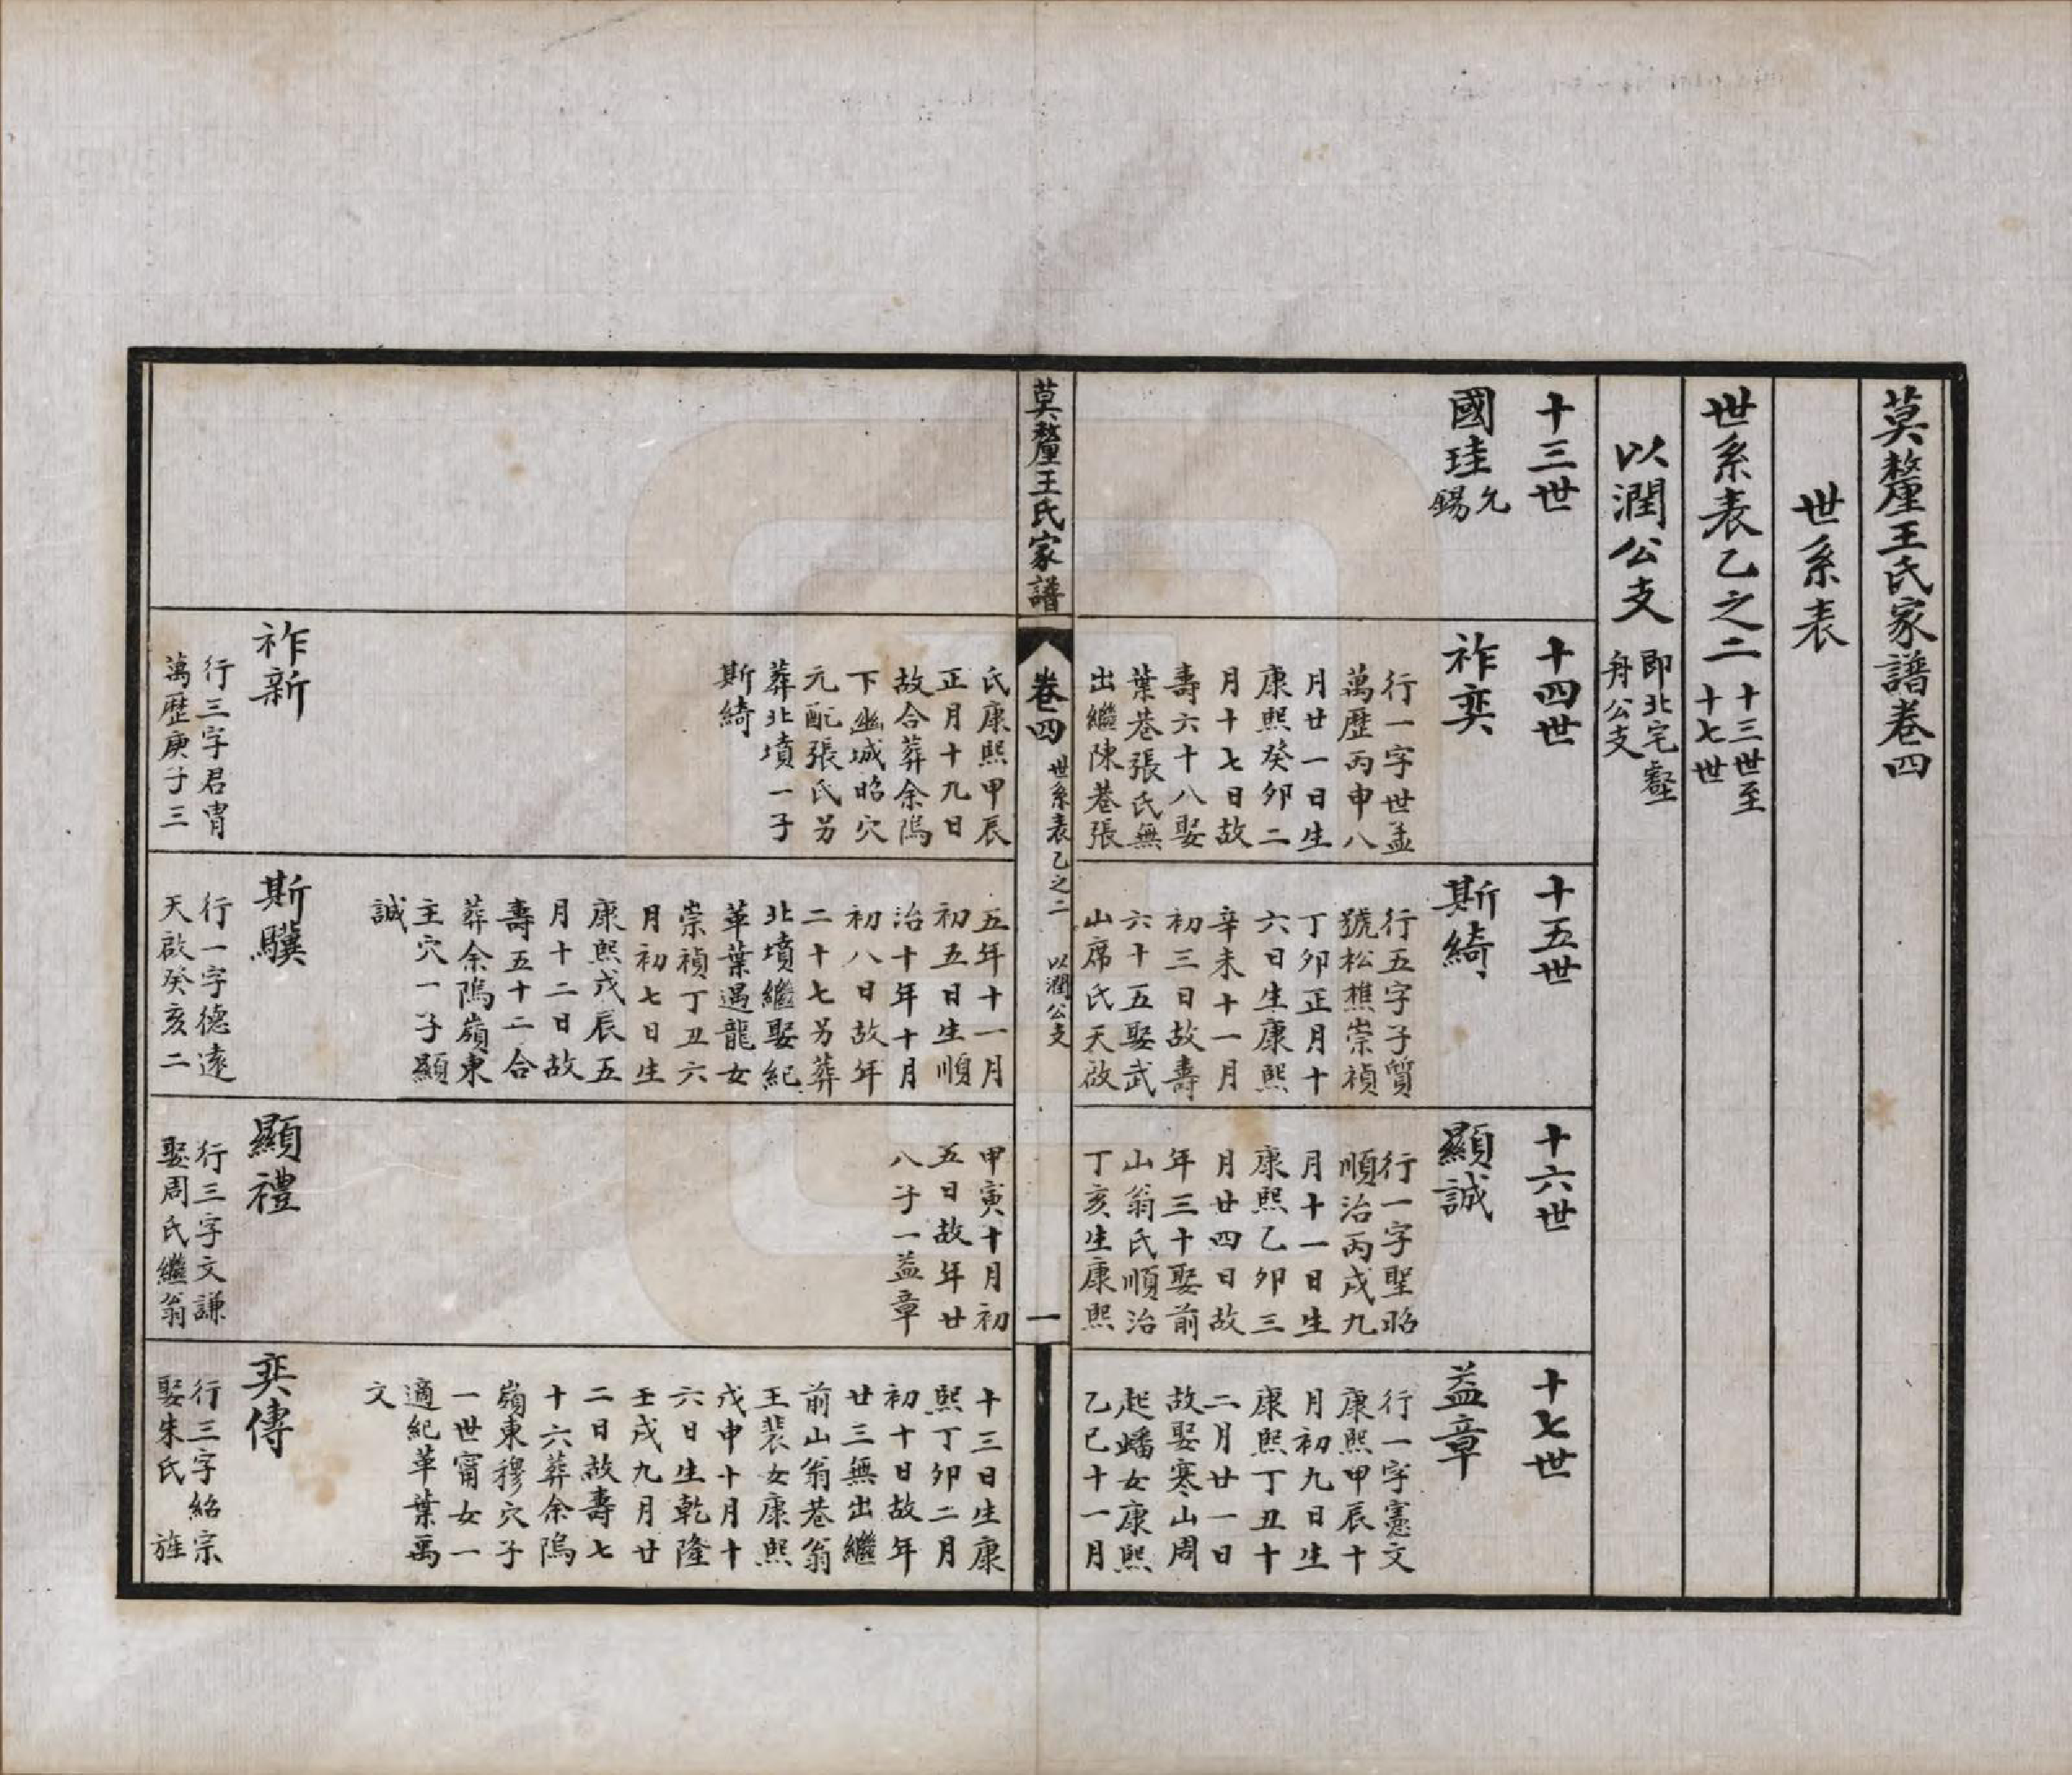 莫釐王氏家譜卷四
世系表
世系表乙之二 十三世至十七世
以潤公支 即北宅壑舟公支
十三世
國珪 允錫
十四世
祚奕
行一字世孟
萬歷丙申八
月廿一日生
康熙癸卯二
月十七日故
壽六十八娶
葉巷張氏無
出繼陳巷張
十五世
斯綺
行五字子質
號松樵崇禎
丁卯正月十
六日生康熙
辛未十一月
初三日故壽
六十五娶武
山席氏天啟
十六世
顯誠
行一字聖昭
順治丙戌九
月十一日生
康熙乙卯三
月廿四日故
年三十娶前
山翁氏順治
丁亥生康熙
十七世
益章
行一字憲文
康熙甲辰十
月初九日生
康熙丁丑十
二月廿一日
故娶寒山周
起蟠女康熙
乙巳十一月
莫釐王氏家譜
卷四 世系表乙之二 以潤公支
一
氏康熙甲辰
正月十九日
故合葬余隖
下幽城昭穴
元配張氏另
葬北墳一子
斯綺
祚新
行三字君胄
萬歷庚子三
五年十一月
初五日生順
治十年十月
初八日故年
二十七另葬
北墳繼娶紀
革葉遇龍女
崇禎丁丑六
月初七日生
康熙戊辰五
月十二日故
壽五十二合
葬余隖嶺東
主穴一子顯
誠
斯驥
行一字德遠
天啟癸亥二
甲寅十月初
五日故年廿
八子一益章
顯禮
行三字文謙
娶周氏繼翁
十三日生康
熙丁卯二月
初十日故年
廿三無出繼
前山翁巷翁
王裴女康熙
戊申十月十
六日生乾隆
壬戌九月廿
二日故壽七
十六葬余隖
嶺東穆穴子
一世甯女一
適紀革葉禹
文
奕傳
行三字紹宗
娶朱氏 旌